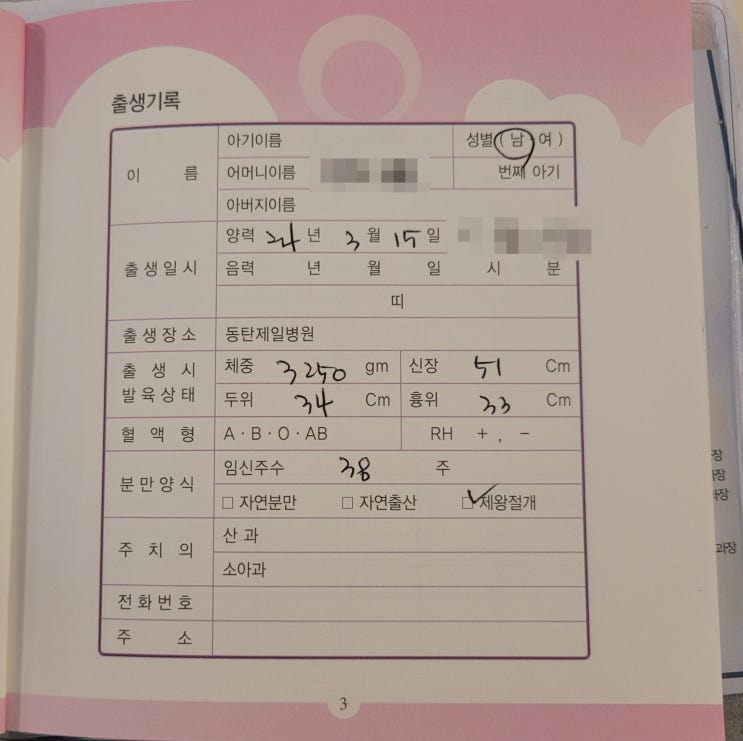 출생기록
이 름
아기이름 성별 ( 남 · 여 )
어머니이름 번째 아기
아버지이름
출생일시
양력 24 년 3 월 15 일
음력 년 월 일 시 분
띠
출생장소 동탄제일병원
출생시 발육상태
체중 3250 gm 신장 51 Cm
두위 34 Cm 흉위 33 Cm
혈액형 A · B · O · AB RH + , −
분만양식
임신주수 38 주
□ 자연분만 □ 자연출산 ☑ 제왕절개
주치의
산 과
소아과
전화번호
주 소
3
과장